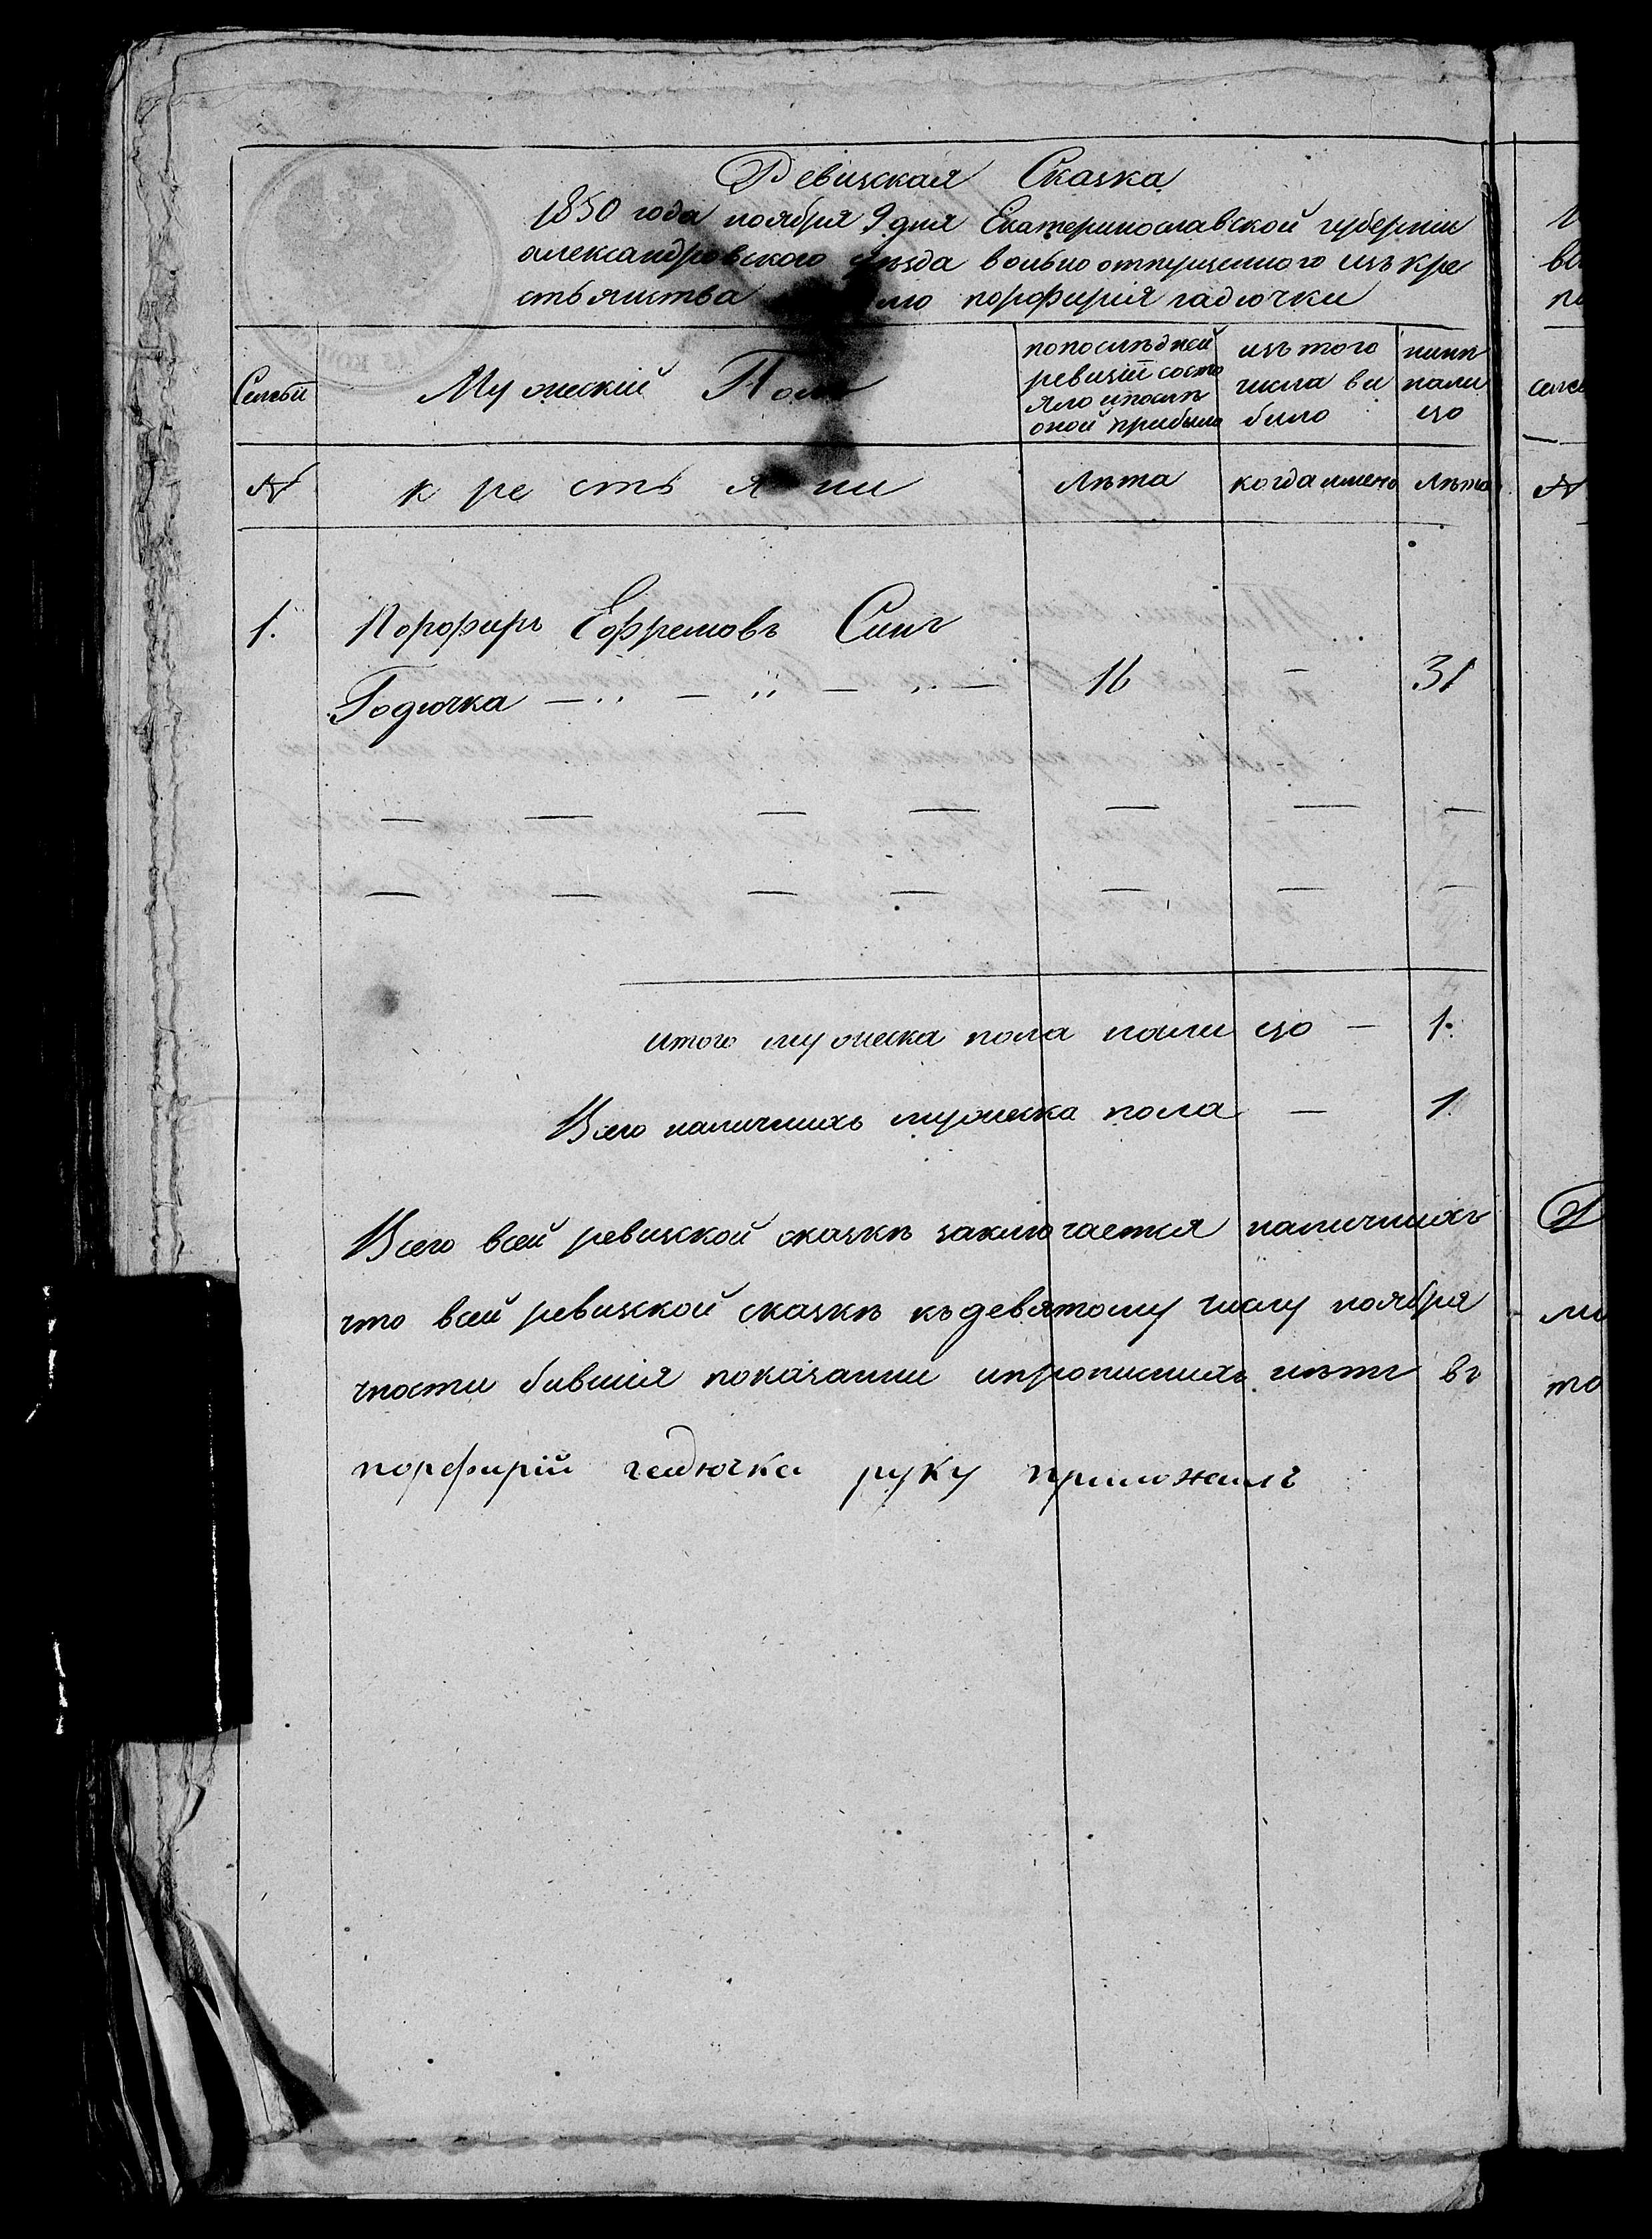 Ревизская Сказка
1850 года ноября 9 дня Екатеринославской губернiи
александровского уѣзда вольно отпущенного изъ кре
стьянства порфирiя гадючки
Семьи
Мужескiй Полъ
попослѣдней ревизiи состо яло ипослѣ оной прибыло
изъ того числа ви било
нинѣ нали цо
№
к ре сть я ни
лѣта
когда имено
лѣта
1.
Порфиръ Ефремовъ Синъ
Годючка
16
31
итого мужеска пола нали цо — 1.
Всего наличнихъ мужеска пола — 1
Всего всей ревизкой сказкѣ заключается наличнихъ
что всей ревизкой сказкѣ къ девятому числу ноября
чности бившiя показанни ипрописнихъ нѣтъ въ
порфирiй гадючка руку приложилъ